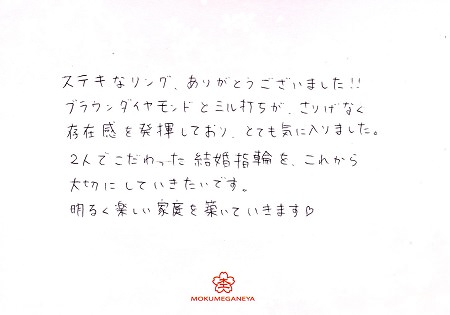 ステキなリング、ありがとうございました!!
ブラウンダイヤモンドとミル打ちが、さりげなく
存在感を発揮しており、とても気に入りました。
2人でこだわった結婚指輪を、これから
大切にしていきたいです。
明るく楽しい家庭を築いていきます♡
MOKUMEGANEYA